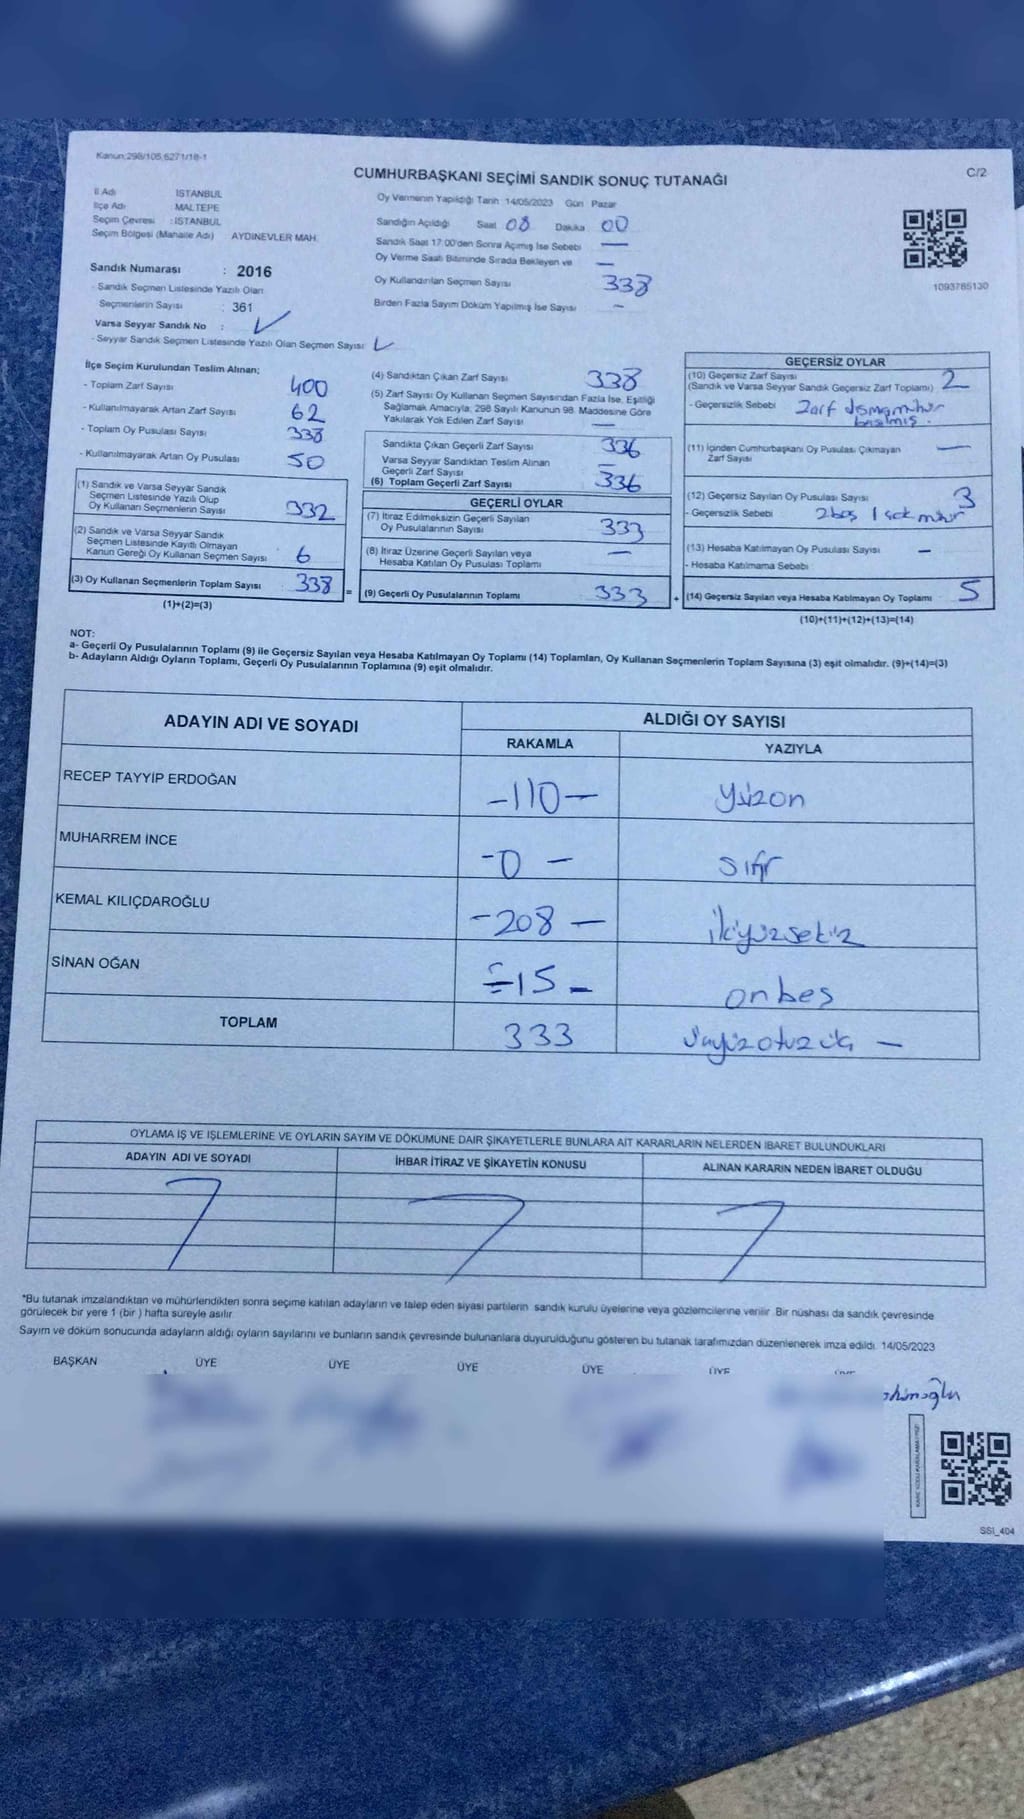 Kanun;298/105,6271/18-1
C/2
CUMHURBAŞKANI SEÇİMİ SANDIK SONUÇ TUTANAĞI
İl Adı İSTANBUL
İlçe Adı MALTEPE
Seçim Çevresi : İSTANBUL
Seçim Bölgesi (Mahalle Adı) AYDINEVLER MAH.
Oy Vermenin Yapıldığı Tarih 14/05/2023 Gün Pazar
Sandığın Açıldığı Saat 08 Dakika 00
Sandık Saat 17:00'den Sonra Açımış İse Sebebi —
Oy Verme Saati Bitiminde Sırada Bekleyen ve —
Oy Kullandırılan Seçmen Sayısı 338
Birden Fazla Sayım Döküm Yapılmış İse Sayısı -
1093785130
Sandık Numarası : 2016
- Sandık Seçmen Listesinde Yazılı Olan
Seçmenlerin Sayısı : 361
Varsa Seyyar Sandık No :
- Seyyar Sandık Seçmen Listesinde Yazılı Olan Seçmen Sayısı
İlçe Seçim Kurulundan Teslim Alınan;
- Toplam Zarf Sayısı 400
- Kullanılmayarak Artan Zarf Sayısı 62
- Toplam Oy Pusulası Sayısı 338
- Kullanılmayarak Artan Oy Pusulası 50
(1) Sandık ve Varsa Seyyar Sandık
Seçmen Listesinde Yazılı Olup
Oy Kullanan Seçmenlerin Sayısı 332
(2) Sandık ve Varsa Seyyar Sandık
Seçmen Listesinde Kayıtlı Olmayan
Kanun Gereği Oy Kullanan Seçmen Sayısı 6
(3) Oy Kullanan Seçmenlerin Toplam Sayısı 338 =
(1)+(2)=(3)
(4) Sandıktan Çıkan Zarf Sayısı 338
(5) Zarf Sayısı Oy Kullanan Seçmen Sayısından Fazla İse, Eşitliği
Sağlamak Amacıyla; 298 Sayılı Kanunun 98. Maddesine Göre
Yakılarak Yok Edilen Zarf Sayısı —
Sandıkta Çıkan Geçerli Zarf Sayısı 336
Varsa Seyyar Sandıktan Teslim Alınan
Geçerli Zarf Sayısı —
(6) Toplam Geçerli Zarf Sayısı 336
GEÇERLİ OYLAR
(7) İtiraz Edilmeksizin Geçerli Sayılan
Oy Pusulalarının Sayısı 333
(8) İtiraz Üzerine Geçerli Sayılan veya
Hesaba Katılan Oy Pusulası Toplamı —
(9) Geçerli Oy Pusulalarının Toplamı 333 +
GEÇERSİZ OYLAR
(10) Geçersiz Zarf Sayısı
(Sandık ve Varsa Seyyar Sandık Geçersiz Zarf Toplamı) 2
- Geçersizlik Sebebi Zarf dışına mühür
basılmış.
(11) İçinden Cumhurbaşkanı Oy Pusulası Çıkmayan
Zarf Sayısı —
(12) Geçersiz Sayılan Oy Pusulası Sayısı 3
- Geçersizlik Sebebi 2 boş 1 çok mühür
(13) Hesaba Katılmayan Oy Pusulası Sayısı —
- Hesaba Katılmama Sebebi
(14) Geçersiz Sayılan veya Hesaba Katılmayan Oy Toplamı 5
(10)+(11)+(12)+(13)=(14)
NOT:
a- Geçerli Oy Pusulalarının Toplamı (9) ile Geçersiz Sayılan veya Hesaba Katılmayan Oy Toplamı (14) Toplamları, Oy Kullanan Seçmenlerin Toplam Sayısına (3) eşit olmalıdır. (9)+(14)=(3)
b- Adayların Aldığı Oyların Toplamı, Geçerli Oy Pusulalarının Toplamına (9) eşit olmalıdır.
ADAYIN ADI VE SOYADI ALDIĞI OY SAYISI
RAKAMLA YAZIYLA
RECEP TAYYİP ERDOĞAN -110- yüzon
MUHARREM İNCE -0- sıfır
KEMAL KILIÇDAROĞLU -208- ikiyüzsekiz
SİNAN OĞAN -15- onbeş
TOPLAM 333 üçyüzotuzüç —
OYLAMA İŞ VE İŞLEMLERİNE VE OYLARIN SAYIM VE DÖKÜMÜNE DAİR ŞİKAYETLERLE BUNLARA AİT KARARLARIN NELERDEN İBARET BULUNDUKLARI
ADAYIN ADI VE SOYADI İHBAR İTİRAZ VE ŞİKAYETİN KONUSU ALINAN KARARIN NEDEN İBARET OLDUĞU
*Bu tutanak imzalandıktan ve mühürlendikten sonra seçime katılan adayların ve talep eden siyasi partilerin sandık kurulu üyelerine veya gözlemcilerine verilir. Bir nüshası da sandık çevresinde
görülecek bir yere 1 (bir ) hafta süreyle asılır.
Sayım ve döküm sonucunda adayların aldığı oyların sayılarını ve bunların sandık çevresinde bulunanlara duyurulduğunu gösteren bu tutanak tarafımızdan düzenlenerek imza edildi. 14/05/2023
BAŞKAN ÜYE ÜYE ÜYE ÜYE ÜYE ÜYE
SSI_404